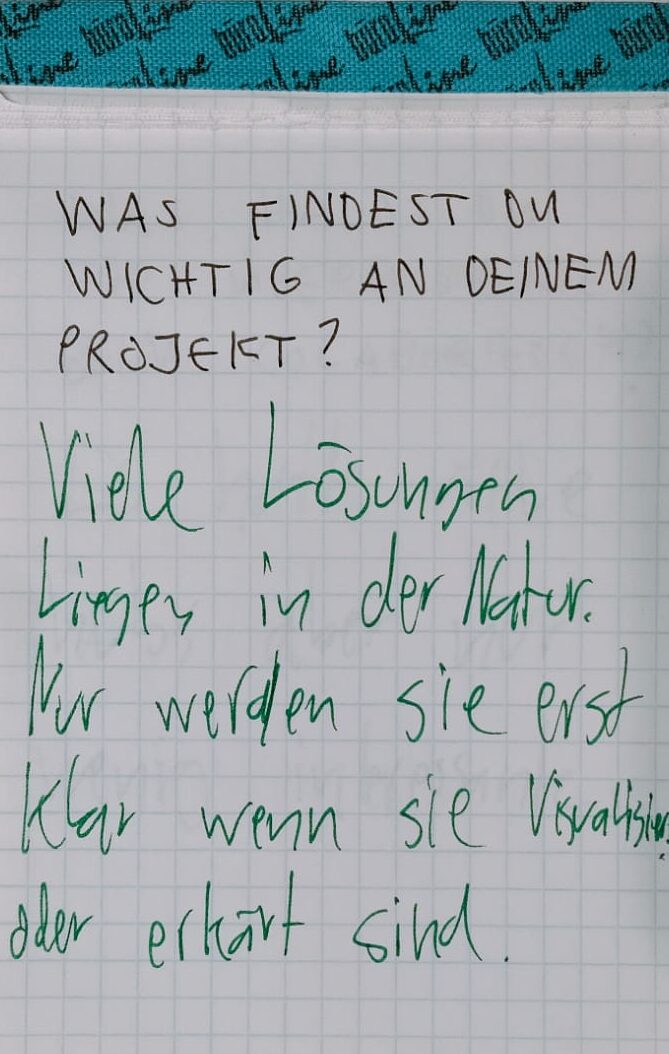 büroline büroline büroline büroline
WAS FINDEST DU
WICHTIG AN DEINEM
PROJEKT?
Viele Lösungen
Liegen in der Natur.
Nur werden sie erst
Klar wenn sie
oder erkärt sind.